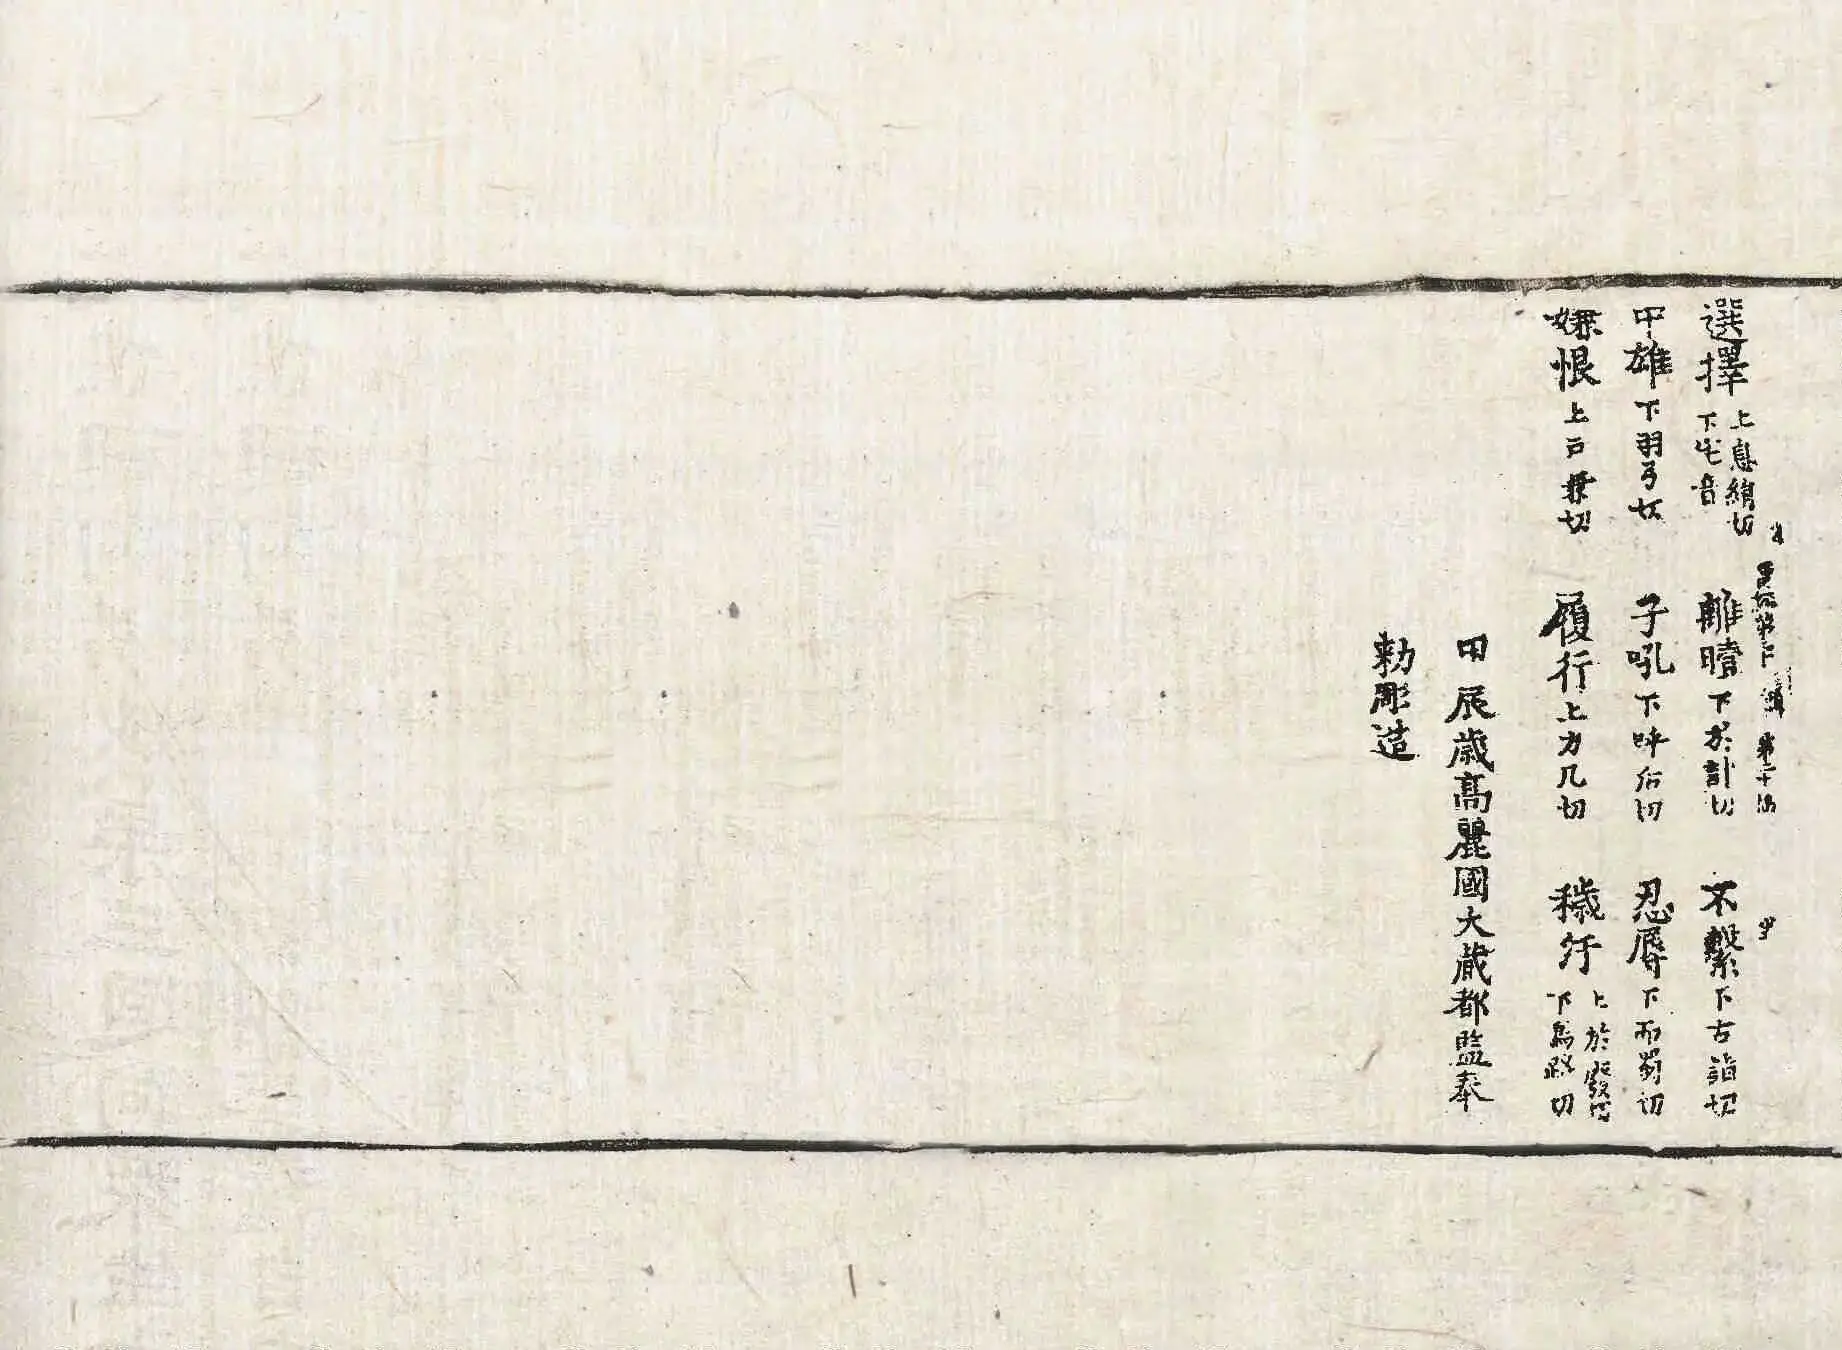 選擇上息絹切下宅音 離曀下於計切 不繫下古詣切
中雄下羽弓切 子吼下呼后切 忍辱下而蜀切
嫌恨上戸兼切 履行上力几切 穢汙上於廢切下烏路切
甲辰歲高麗國大藏都監奉
勅彫造